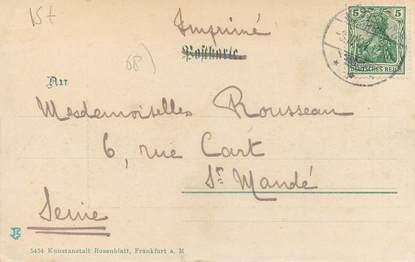 15t
Imprimé
Postkarte
68)
5 5
DEUTSCHES REICH
An
Mesdemoiselles Rousseau
6, rue Cart
St Mandé
Seine
5454 Kunstanstalt Rosenblatt, Frankfurt a. M